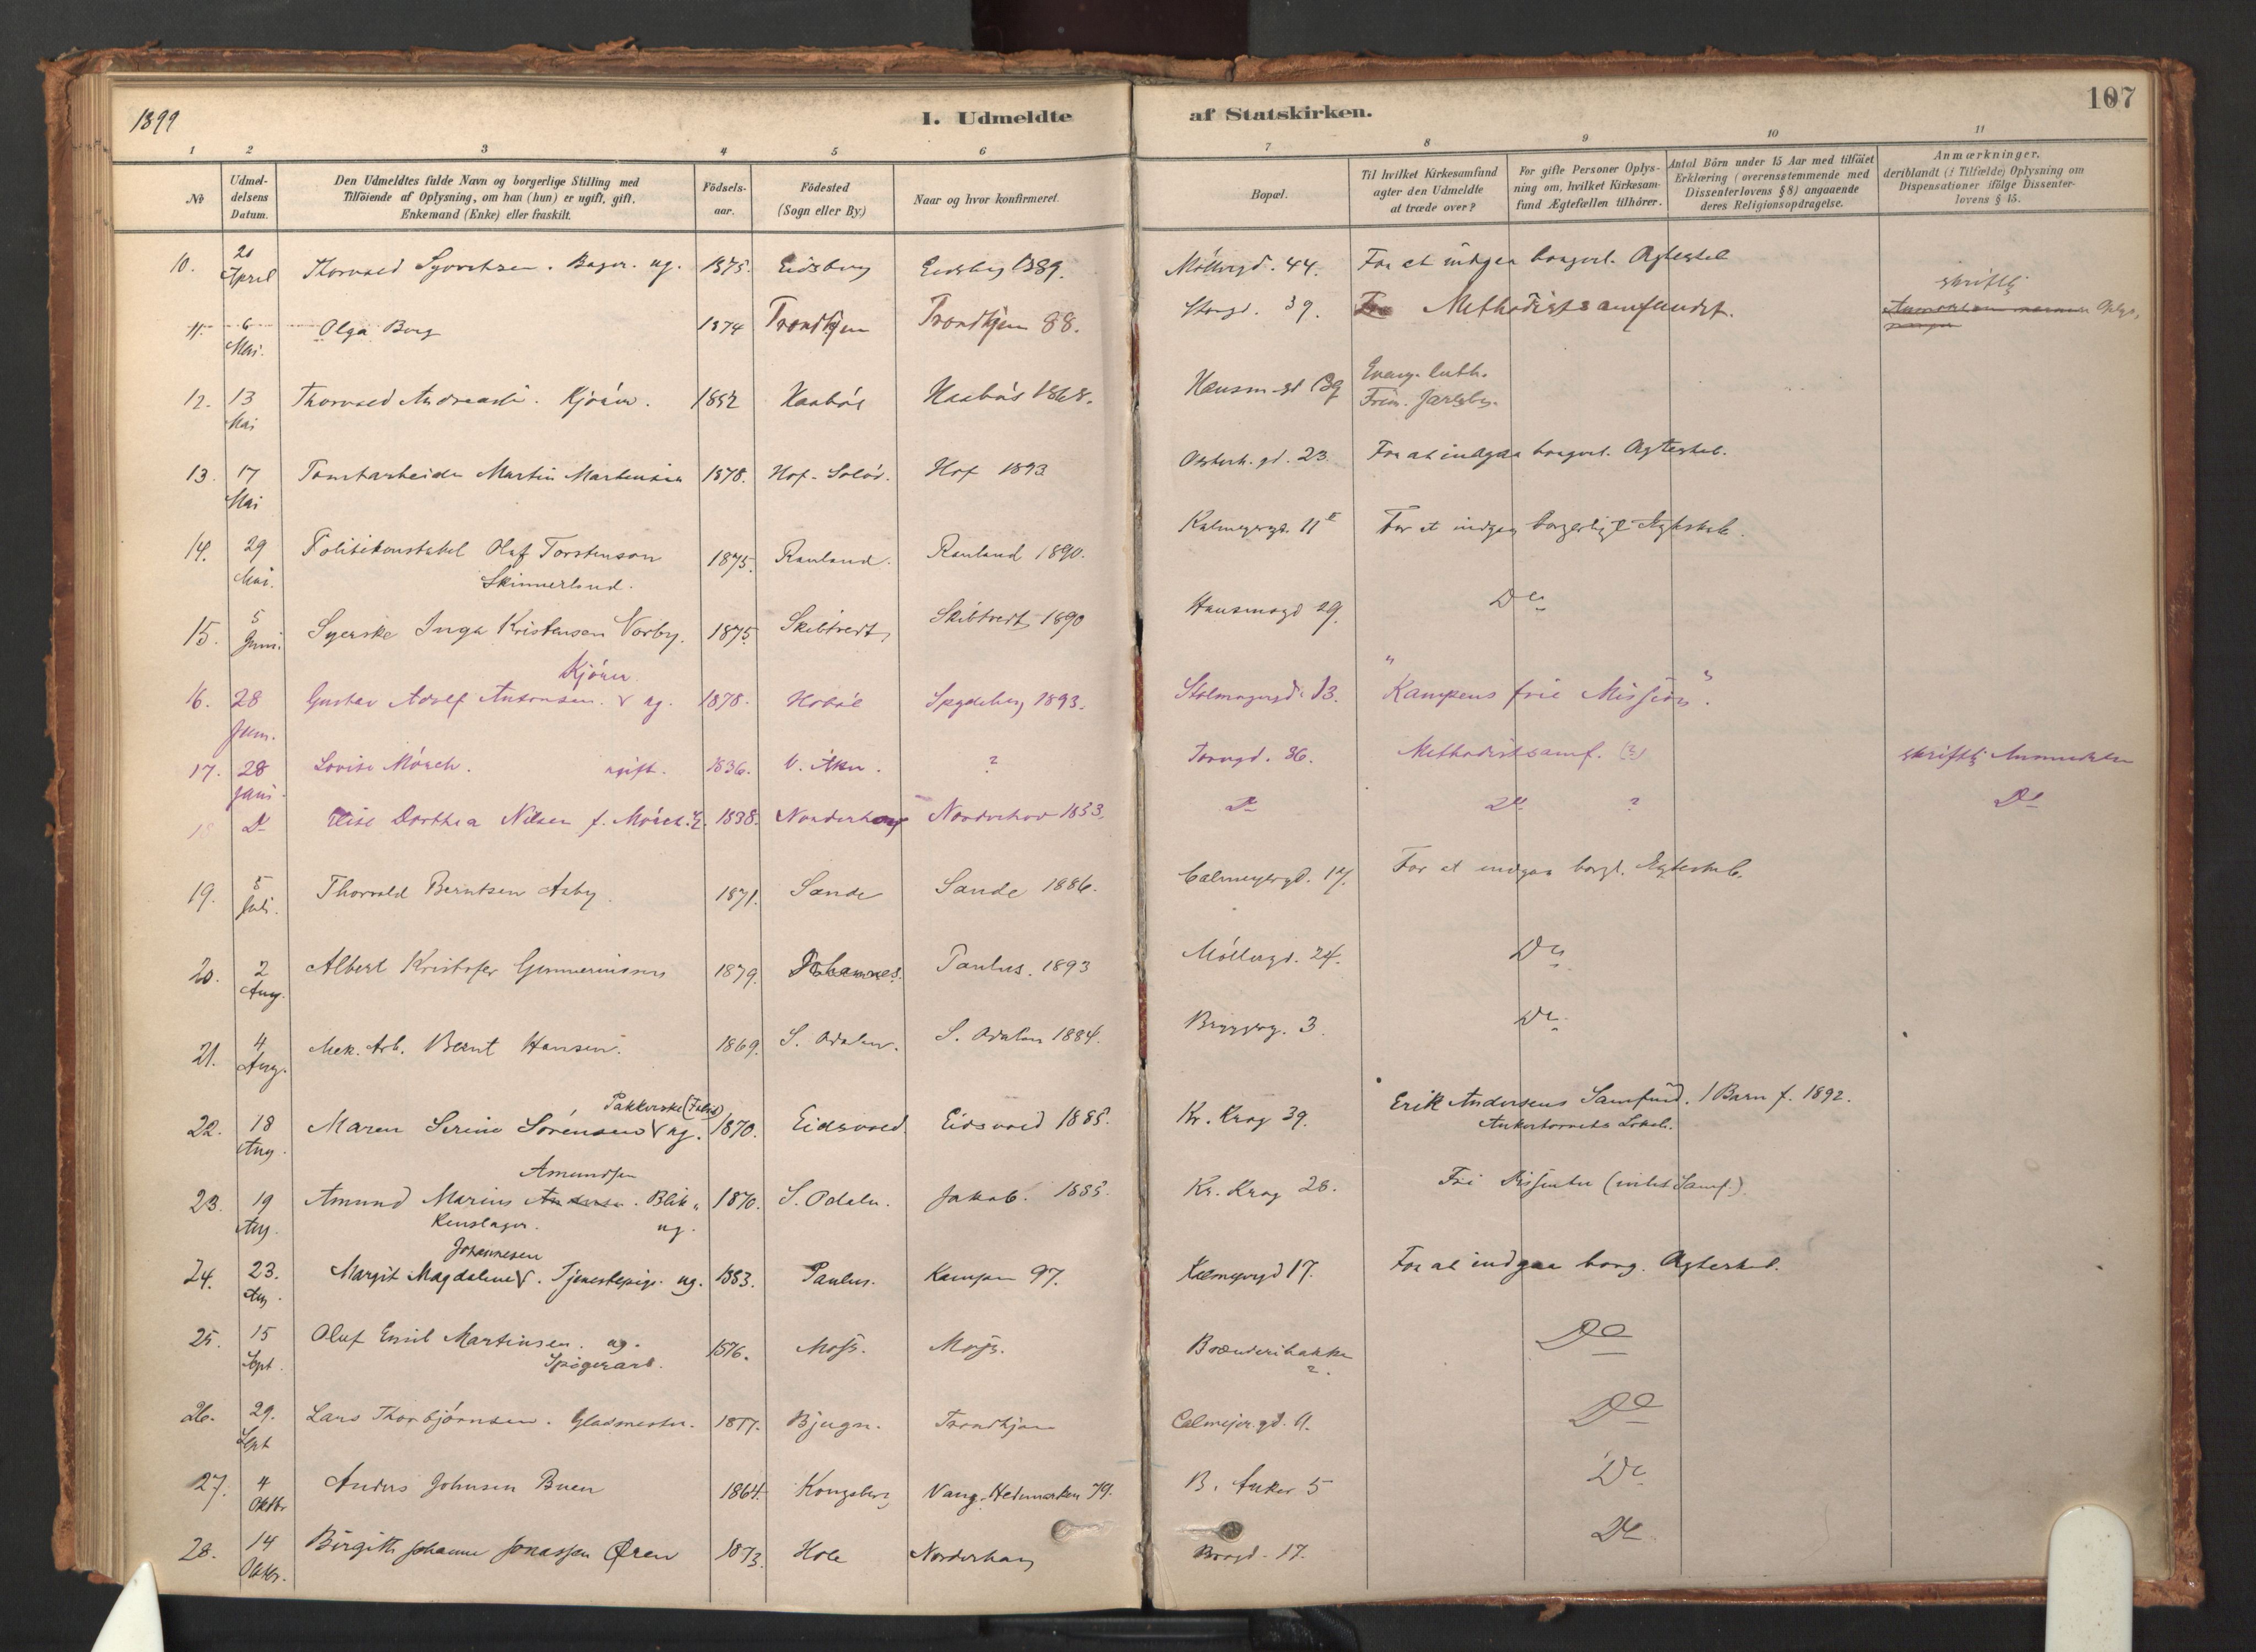 1899
I. Udmeldte
af Statskirken.
107
1 2 3 4 5 6 7 8 9 10 11
No
Udmel-
delsens
Datum.
Den Udmeldtes fulde Navn og borgerlige Stilling med
Tilföiende af Oplysning, om han (hun) er ugift, gift,
Enkemand (Enke) eller fraskilt.
Födsels-
aar.
Födested
(Sogn eller By.)
Naar og hvor konfirmeret.
Bopæl.
Til hvilket Kirkesamfund
agter den Udmeldte
at træde over?
For gifte Personer Oplys-
ning om, hvilket Kirkesam-
fund Ægtefællen tilhörer.
Antal Börn under 15 Aar med tilföiet
Erklæring (overensstemmende med
Dissenterlovens § 8) angaaende
deres Religionsopdragelse.
Anmærkninger.
deriblandt (i Tilfælde) Oplysning om
Dispensationer ifölge Dissenter-
lovens § 15.
10. April Thorvald ug. 1875. Eidsberg Eidsberg 1889. Möllergd. 44. For at indgaa borgerl. Ægteskab
skriftlig
11. 6 Mai. Olga Berg 1874 Trondhjem Trondhjem 88. Storgd. 39. Methodistsamfundet.
12. 13 Mai Thorvald 1852 1868. Hausm.gd 139 Evang. luth.
Frim. Jarlsby.
13. 17 Mai Martin Martinsen 1878. Hof-Solör. Hof 1893 23. For at indgaa borgerl. Ægteskab.
14. 29 Mai. Politikonstabel Olaf Torstenson 1875. Rauland. Rauland 1890. Kalmeyergd. 11 II For at indgaa borgerligt Ægteskab.
Skinnerland.
15. 5 Juni. Syerske Inga Kristensen Varby. 1875 Skibtvedt, Skibtvedt 1890 Hausmagd 29. Do
Kjörer
16. 28 Juni. Gustav Adolf Antonsen. ug. 1878. Hobøl Spydeberg 1893. Stolmagergd. 13. "Kampens frie Mission".
17. 28 Juni. Lovise Mörch. ugift. 1836. V. Aker. ? Torvgd. 36. Methodistsamf. (?) skriftlig Anmeldelse
18 Do Elise Dorthea Nilsen f. Mörch. E. 1838. Norderhov Norderhov 1853. Do Do ? Do
19. 5 Juli. Thorvald Berntsen Aaby. 1871. Sande Sande 1886. Calmeyergd. 17. For at indgaa borgl. Egteskab.
20. 2 Aug. Albert Kristofer Gunneriussen 1879. Johannes. Paulus. 1893 Möllergd. 24. Do
21. 4 Aug. Mek. Arb. Bernt Hansen. 1869. S. Odalen. S. Odalen 1884. Bryggerg. 3. Do
Pakkerske (Fabrik)
22. 18 Aug. Maren Serine Sörensen ug. 1870. Eidsvold Eidsvold 1885. Kr. Krog 39. Erik Andersens Samfund. 1 Barn f. 1892.
Ankertorvets Lokale.
Amundsen
23. 19 Aug. Amund Marius Andersen. Blik- 1870. S. Odalen. Jakob. 1885. Kr. Krog 28. Fri Missionen (hvilket Samf.).
kenslager. ug.
Johannesen
24. 23. Aug. Margit Magdalene. Tjenestepige. ug. 1883. Paulus. Kampen 97. Kalmeyergd 17. For at indgaa borg. Ægteskab.
25. 15 Sept. Oluf Emil Martinsen. ug. 1876. Moss. Moss. Brænderibakken 2. Do
Spigerarb.
26. 29. Sept Lars Thorbjörnsen. Glasmester. 1877. Bjugn. Trondhjem Calmejer.gd. 9. Do
27. 4 Oktbr Anders Johnsen Buen 1864. Kongsberg Vang. Hedemarken 79. B. Anker 5 Do
28. 14 Oktbr. Birgith Johanne Jonassen Øren 1873. Hole Norderhov 17. Do